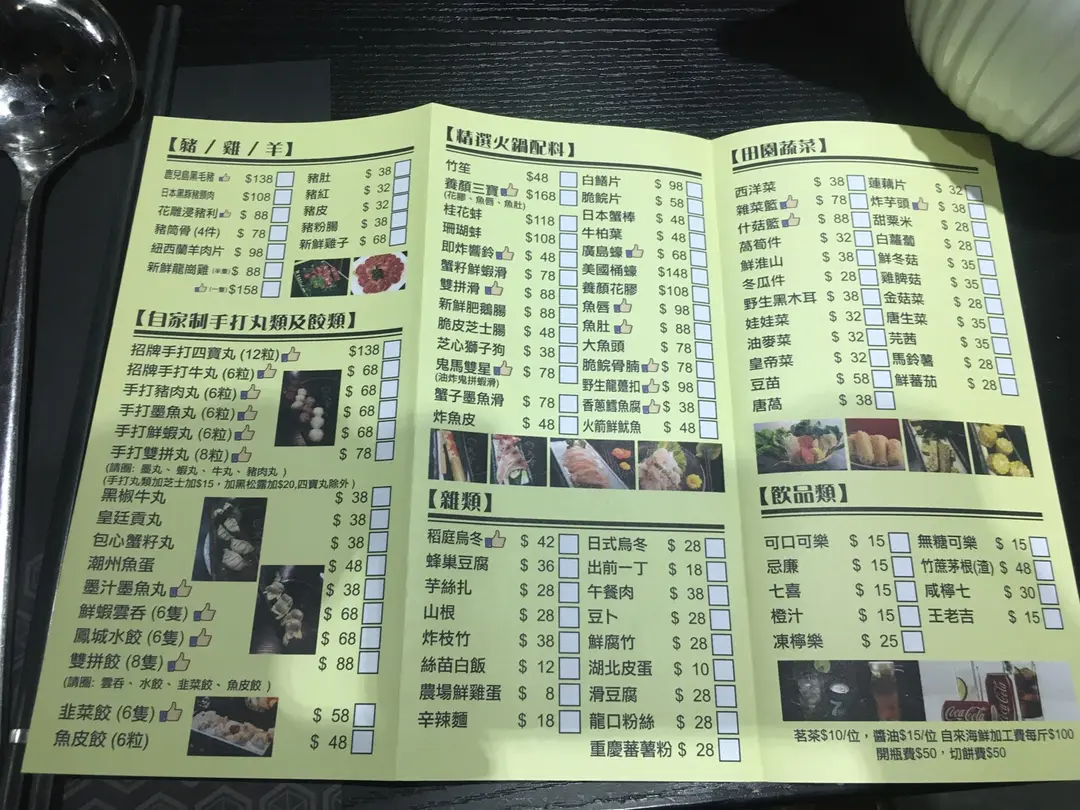 【豬/雞/羊】
鹿兒島黑毛豬 $138
日本黑豚豬頸肉 $108
花雕浸豬利 $ 88
豬筒骨 (4件) $ 78
紐西蘭羊肉片 $ 98
新鮮龍崗雞 (半隻) $ 88
(一隻) $158
豬肚 $ 38
豬紅 $ 32
豬皮 $ 32
豬粉腸 $ 38
新鮮雞子 $ 68
【自家制手打丸類及餃類】
招牌手打四寶丸 (12粒) $138
招牌手打牛丸 (6粒) $ 68
手打豬肉丸 (6粒) $ 68
手打墨魚丸 (6粒) $ 68
手打鮮蝦丸 (6粒) $ 68
手打雙拼丸 (8粒) $ 78
(請圈: 墨丸、蝦丸、牛丸、豬肉丸)
(手打丸類加芝士加$15，加黑松露加$20,四寶丸除外)
黑椒牛丸 $ 38
皇廷貢丸 $ 38
包心蟹籽丸 $ 38
潮州魚蛋 $ 48
墨汁墨魚丸 $ 38
鮮蝦雲吞 (6隻) $ 68
鳳城水餃 (6隻) $ 68
雙拼餃 (8隻) $ 88
(請圈: 雲吞、水餃、韭菜餃、魚皮餃)
韭菜餃 (6隻) $ 58
魚皮餃 (6粒) $ 48
【精選火鍋配料】
竹笙 $48
養顏三寶 $168
(花膠、魚唇、魚肚)
桂花蚌 $118
珊瑚蚌 $108
即炸響鈴 $ 48
蟹籽鮮蝦滑 $ 78
雙拼滑 $ 88
新鮮肥鵝腸 $ 88
脆皮芝士腸 $ 48
芝心獅子狗 $ 38
鬼馬雙星 $ 78
(油炸鬼拼蝦滑)
蟹子墨魚滑 $ 78
炸魚皮 $ 48
白鱔片 $ 98
脆鯇片 $ 58
日本蟹棒 $ 48
牛柏葉 $ 48
廣島蠔 $ 68
美國桶蠔 $148
養顏花膠 $108
魚唇 $ 98
魚肚 $ 88
大魚頭 $ 78
脆鯇骨腩 $ 78
野生龍躉扣 $ 98
香蔥鱈魚腐 $ 38
火箭鮮魷魚 $ 48
【雜類】
稻庭烏冬 $ 42
蜂巢豆腐 $ 36
芋絲扎 $ 28
山根 $ 28
炸枝竹 $ 38
絲苗白飯 $ 12
農場鮮雞蛋 $ 8
辛辣麵 $ 18
日式烏冬 $ 28
出前一丁 $ 18
午餐肉 $ 38
豆卜 $ 28
鮮腐竹 $ 28
湖北皮蛋 $ 10
滑豆腐 $ 28
龍口粉絲 $ 28
重慶蕃薯粉 $ 28
【田園蔬菜】
西洋菜 $ 38
雜菜籃 $ 78
什菇籃 $ 88
萵筍件 $ 32
鮮淮山 $ 38
冬瓜件 $ 28
野生黑木耳 $ 38
娃娃菜 $ 32
油麥菜 $ 32
皇帝菜 $ 32
豆苗 $ 58
唐萵 $ 38
蓮藕片 $ 32
炸芋頭 $ 38
甜粟米 $ 28
白蘿蔔 $ 28
鮮冬菇 $ 35
雞脾菇 $ 35
金菇菜 $ 28
唐生菜 $ 35
芫茜 $ 35
馬鈴薯 $ 28
鮮蕃茄 $ 28
【飲品類】
可口可樂 $ 15
忌廉 $ 15
七喜 $ 15
橙汁 $ 15
凍檸樂 $ 25
無糖可樂 $ 15
竹蔗茅根(渣) $ 48
咸檸七 $ 30
王老吉 $ 15
Coca-Cola
Coca-Cola
茗茶$10/位，醬油$15/位 自來海鮮加工費每斤$100
開瓶費$50，切餅費$50